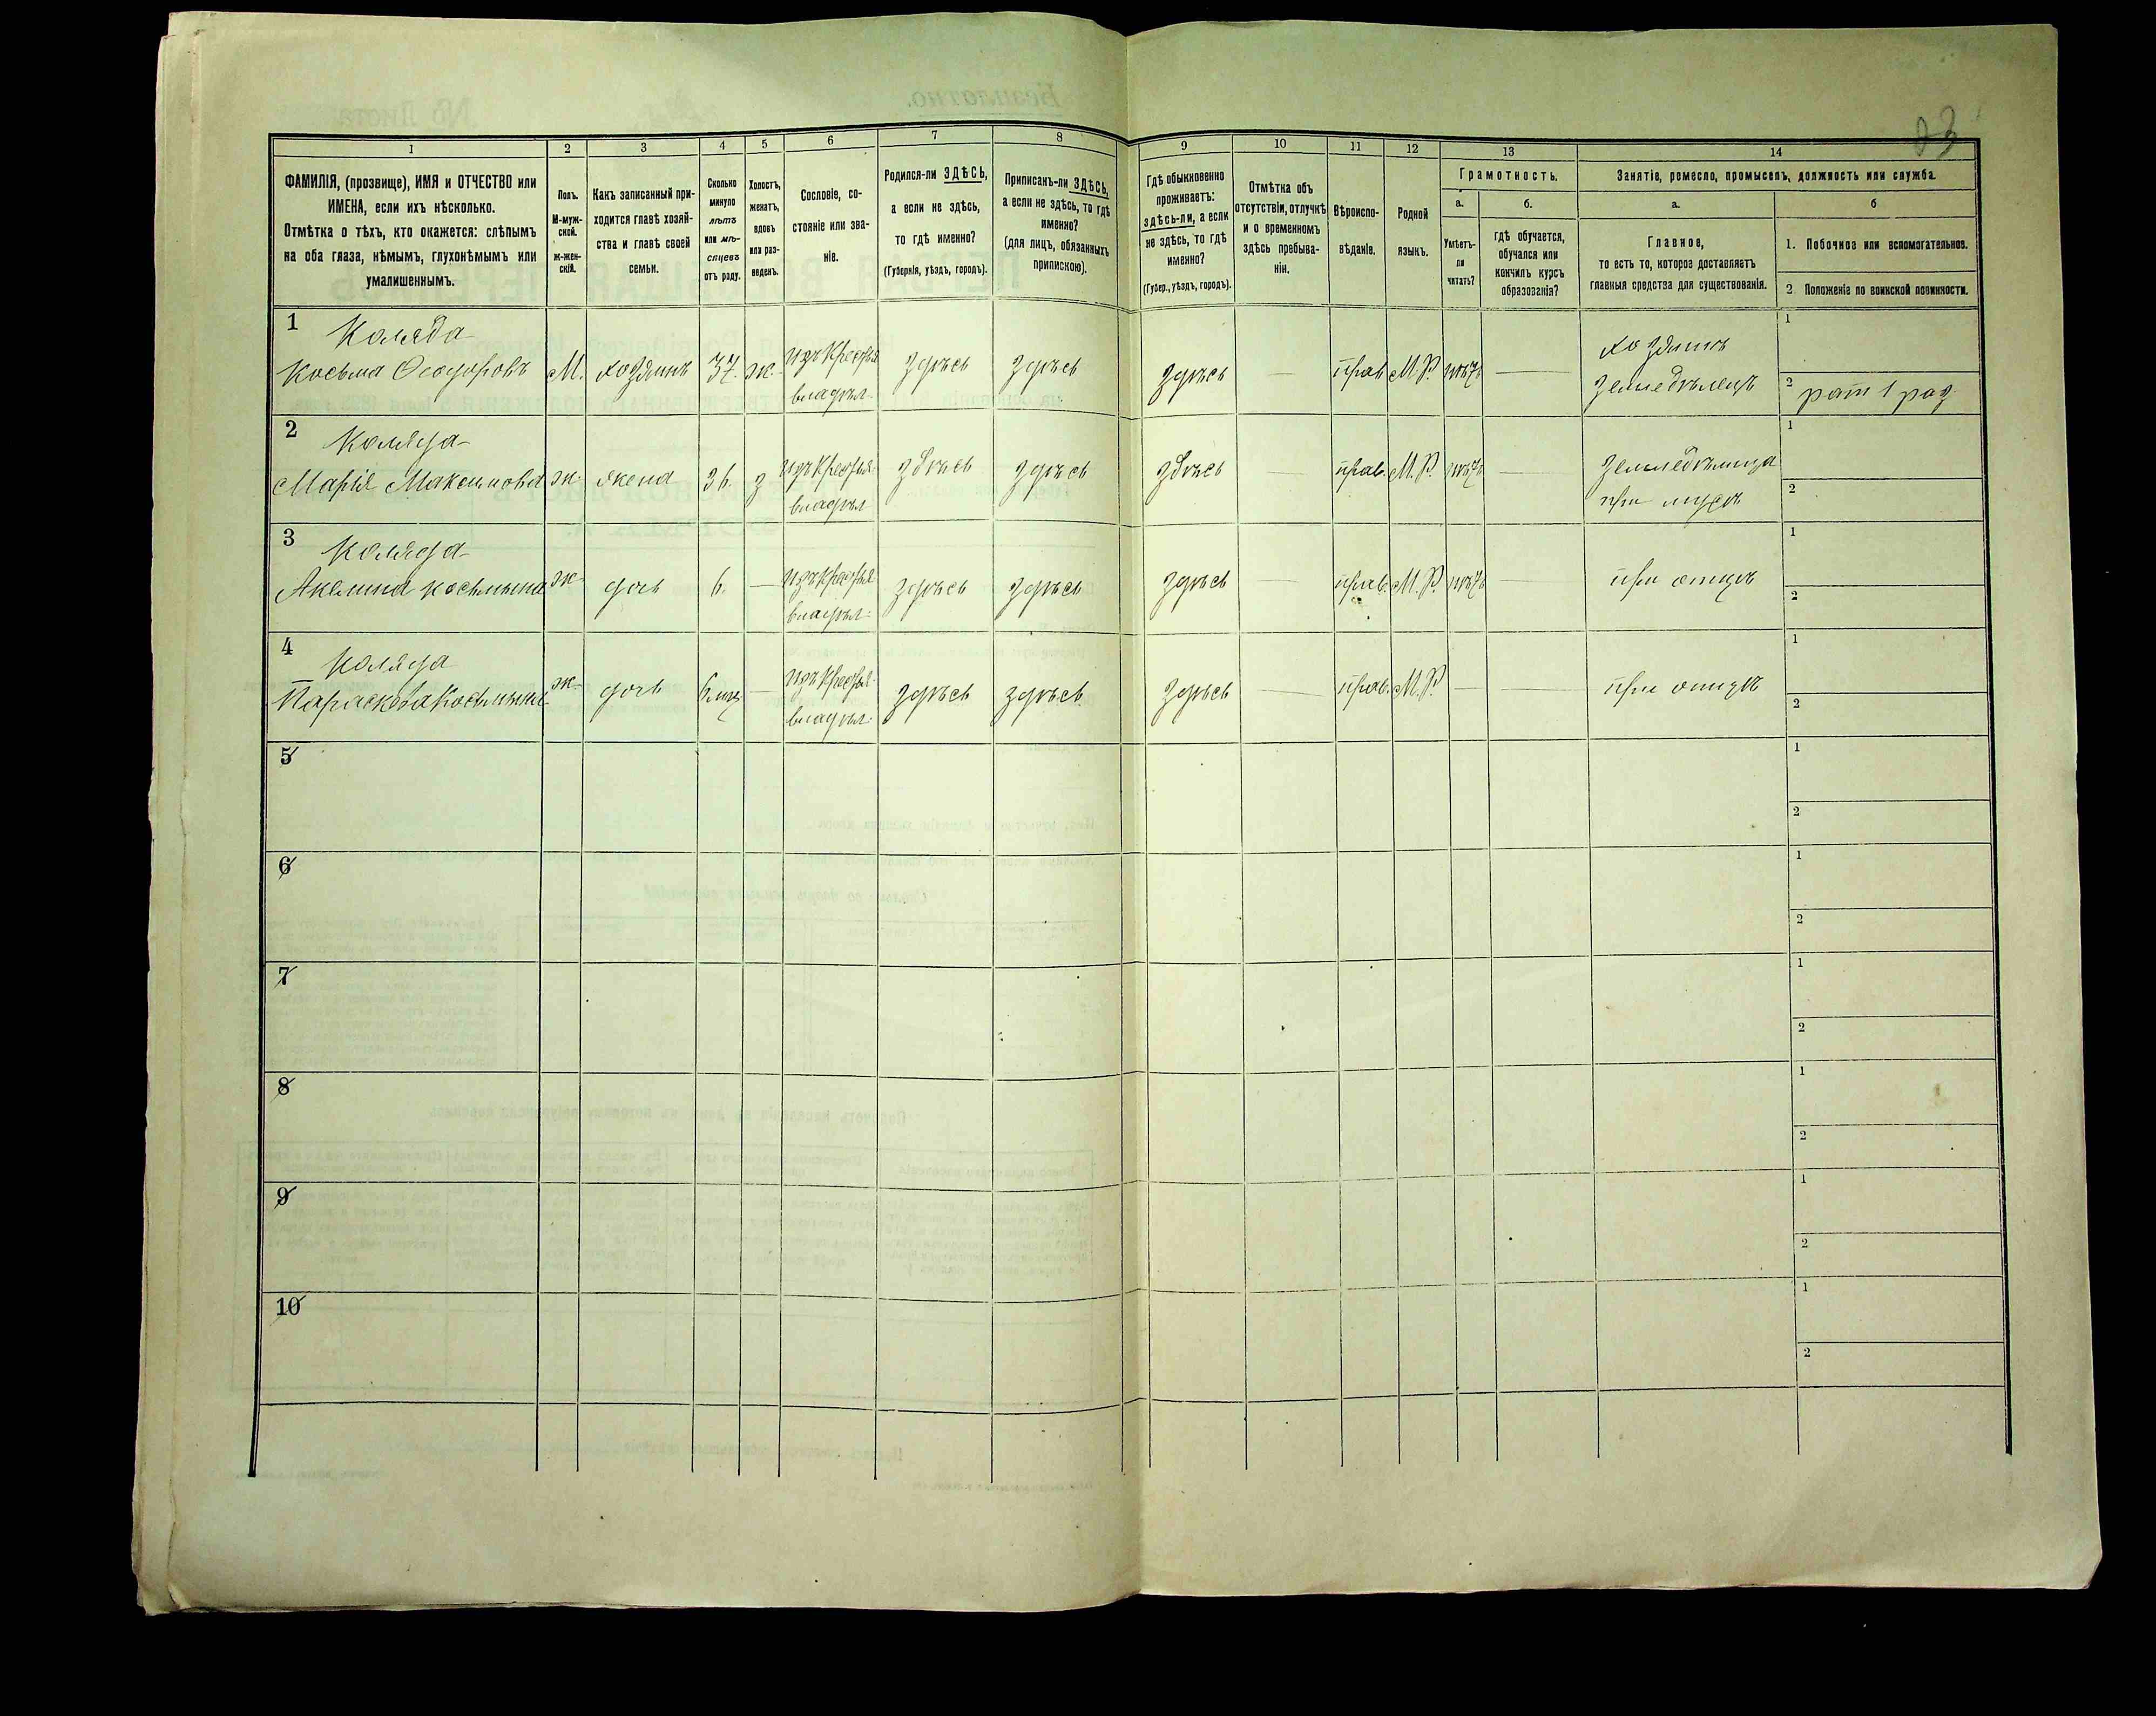 23
1 2 3 4 5 6 7 8 9 10 11 12 13 14
ФАМИЛІЯ, (прозвище), ИМЯ и ОТЧЕСТВО или
ИМЕНА, если ихъ нѣсколько.
Отмѣтка о тѣхъ, кто окажется: слѣпымъ
на оба глаза, нѣмымъ, глухонѣмымъ или
умалишеннымъ.
Полъ.
М-муж-
ской.
Ж-жен-
скій.
Какъ записанный при-
ходится главѣ хозяй-
ства и главѣ своей
семьи.
Сколько
минуло
лѣтъ
или мѣ-
сяцевъ
отъ роду.
Холостъ,
женатъ,
вдовъ
или раз-
веденъ.
Сословіе, со-
стояніе или зва-
ніе.
Родился-ли ЗДѢСЬ,
а если не здѣсь,
то гдѣ именно?
(Губернія, уѣздъ, городъ).
Приписанъ-ли ЗДѢСЬ,
а если не здѣсь, то гдѣ
именно?
(для лицъ, обязанныхъ
припискою).
Гдѣ обыкновенно
проживаетъ:
здѣсь-ли, а если
не здѣсь, то гдѣ
именно?
(Губер., уѣздъ, городъ).
Отмѣтка объ
отсутствіи, отлучкѣ
и о временномъ
здѣсь пребыва-
ніи.
Вѣроиспо-
вѣданіе.
Родной
языкъ.
Грамотность.
а.
Умѣетъ-
ли
читать?
б.
гдѣ обучается,
обучался или
кончилъ курсъ
образованія?
Занятіе, ремесло, промыселъ, должность или служба.
а.
Главное,
то есть то, которое доставляетъ
главныя средства для существованія.
б
1. Побочное или вспомогательное.
2 Положеніе по воинской повинности.
1 Коляда
Косьма Ѳеодоровъ М. хозяинъ 37. ж. изъ Крестья владѣл. здѣсь здѣсь здѣсь — прав. М.Р. нѣтъ — хозяинъ
земледѣлецъ
1
2 рат 1 раз
2 Коляда
Марія Максимова ж. жена 36. з изъ Крестья владѣл. здѣсь здѣсь здѣсь — прав. М.Р. нѣтъ — земледѣлица
при мужѣ
1
2
3 Коляда
Акелина Косьмина ж. дочь 6. — изъ Крестья владѣл. здѣсь здѣсь здѣсь — прав. М.Р. нѣтъ — при отцѣ
1
2
4 Коляда
Параскева Косьмина ж. дочь 6 мц — изъ Крестья владѣл. здѣсь здѣсь здѣсь — прав. М.Р. — — при отцѣ
1
2
5
1
2
6
1
2
7
1
2
8
1
2
9
1
2
10
1
2